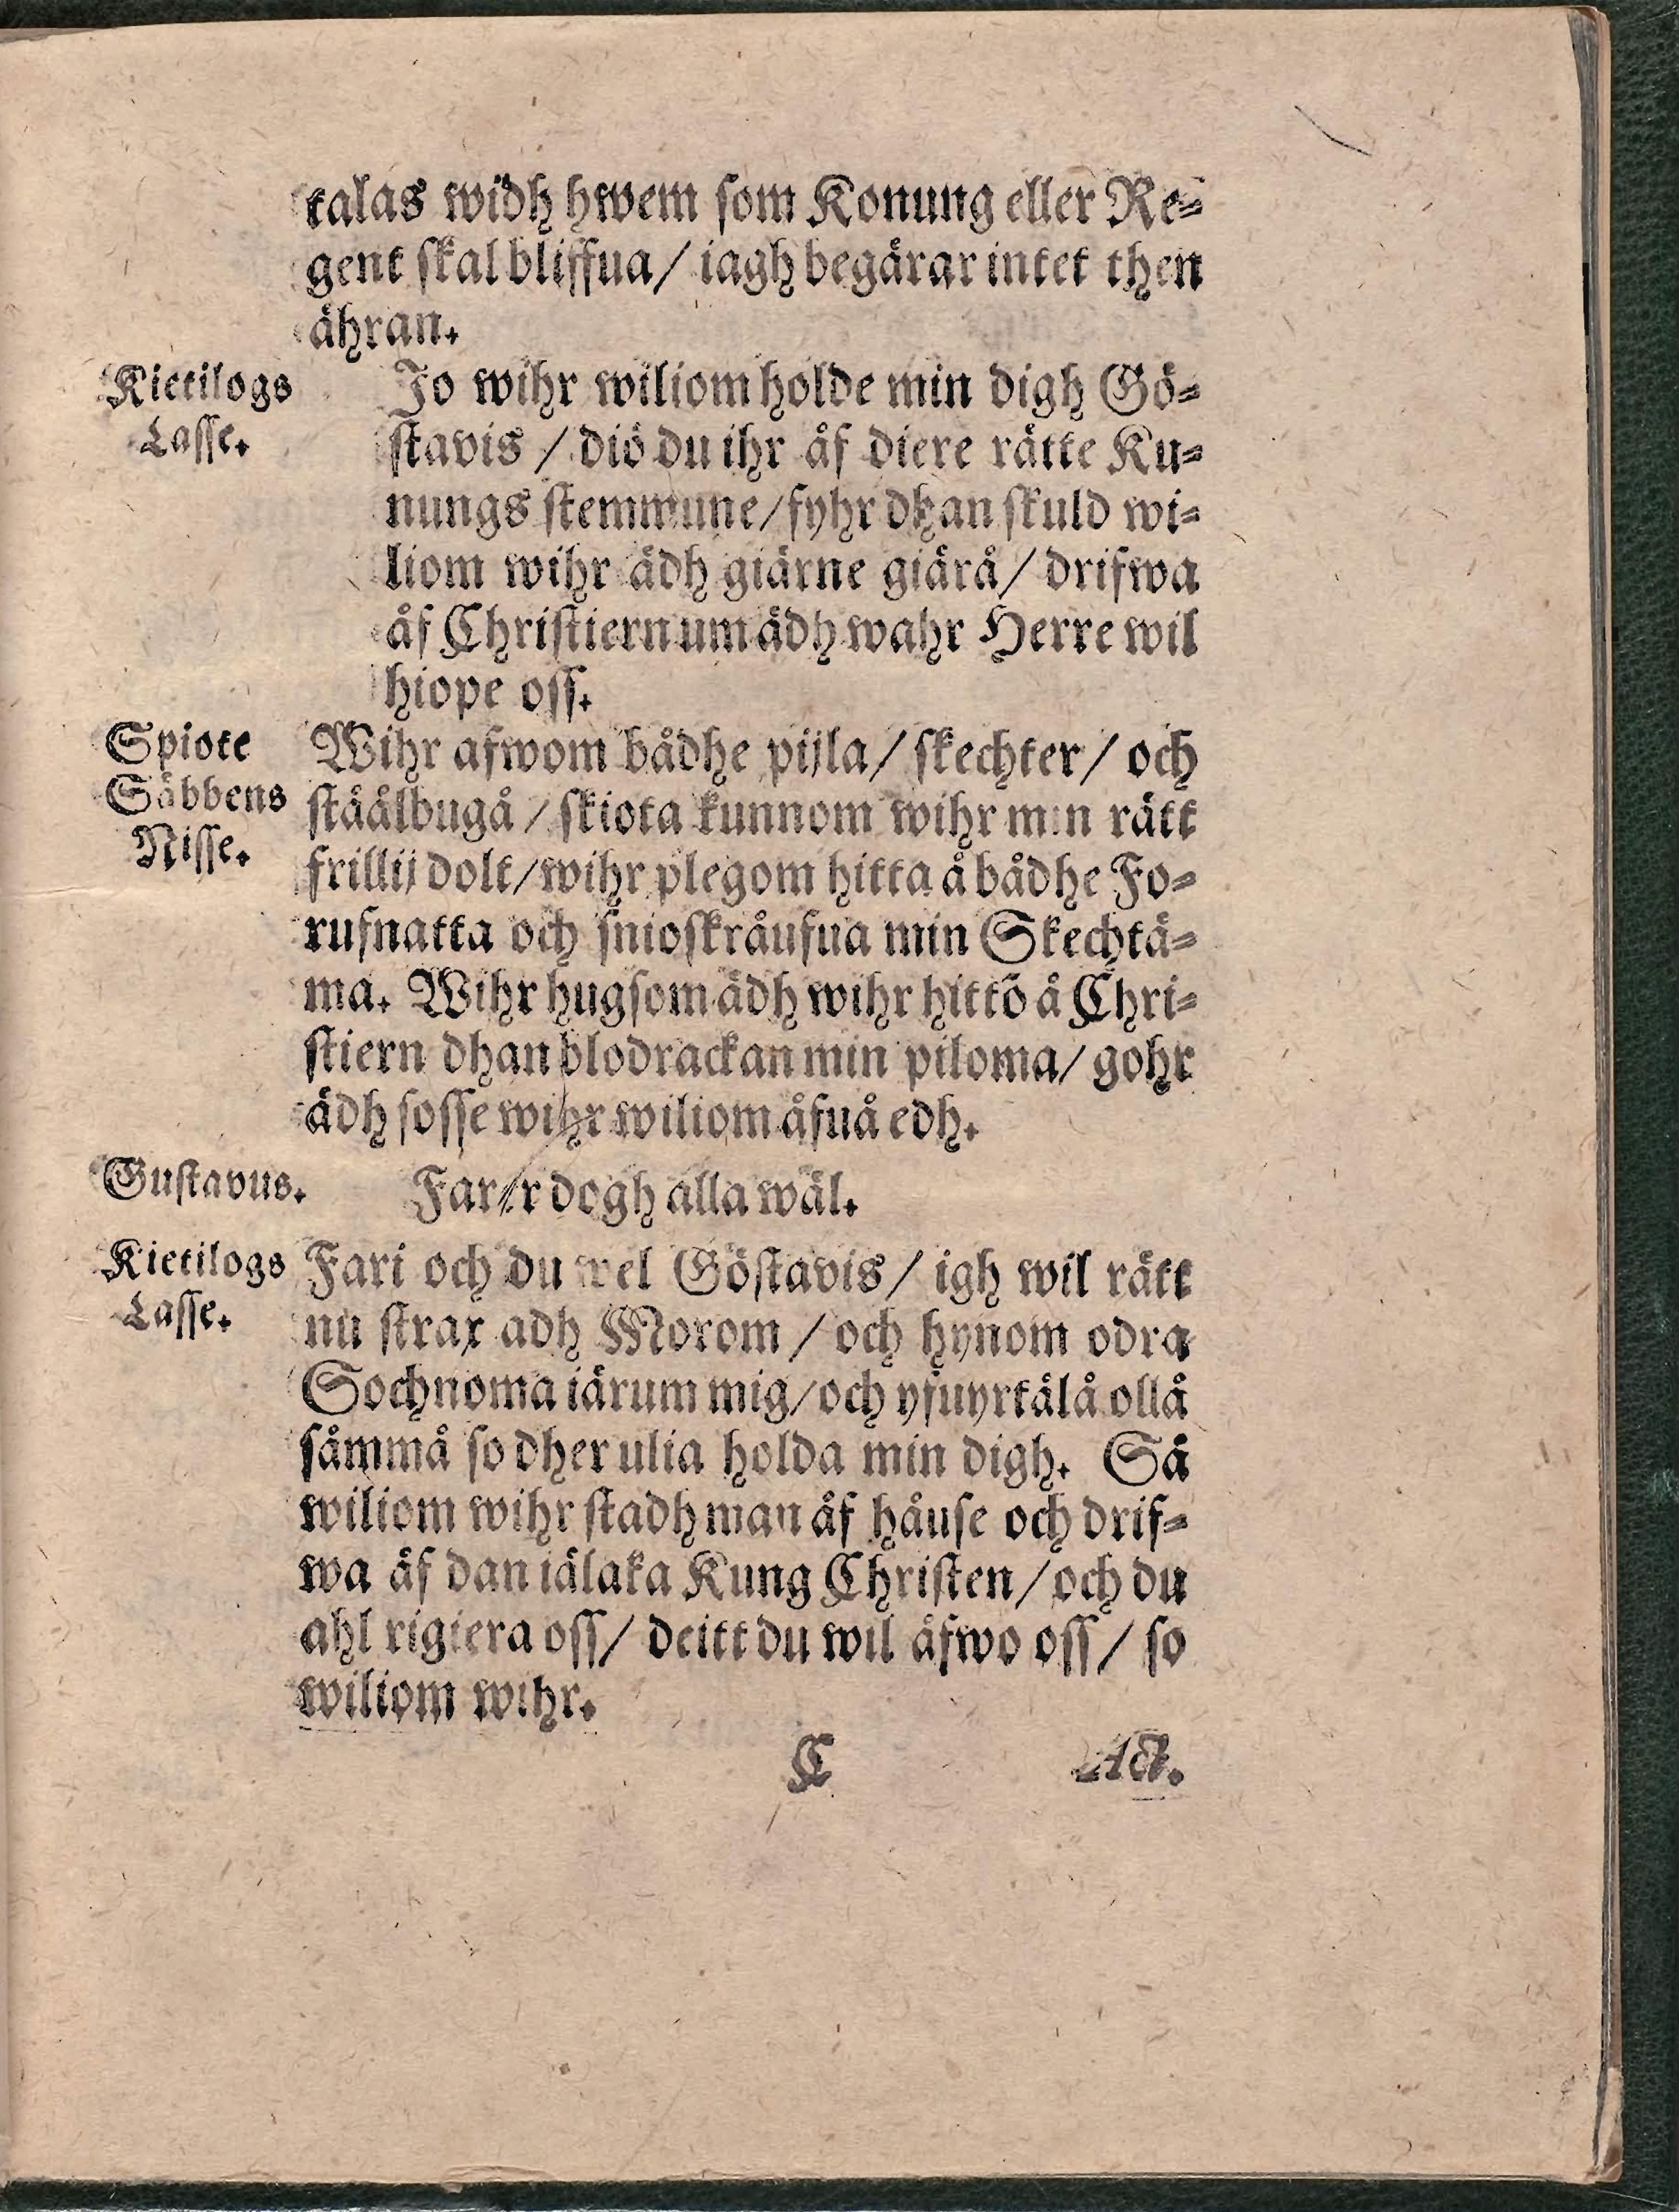 talas widh hwem som Konung eller Re-
gent skal bliffua/ iagh begärar intet then
ähran.
Kietilogs
Lasse.
Jo wihr wiliom holde min digh Gö-
stavis / diö du ihr åf diere rätte Ku-
nungs stemmune/ fyhr dhan skuld wi-
liom wihr ädh giärne giärå/ drifwa
åf Christiern um ädh wahr Herre wil
hiope oss.
Spiote
Säbbens
Nisse.
Wihr afwom bådhe pijla/ skechter/ och
stäålbugå / skiota kunnom wihr min rätt
frillij dolt/ wihr plegom hitta å bådhe Fo-
rufnatta och snioskråufua min Skechtä-
ma. Wihr hugsom ädh wihr hittō å Chri-
stiern dhan blodrackan min piloma/ gohr
ädh sosse wihr wiliom åfuå edh.
Gustavus.
Farer dogh alla wäl.
Kietilogs
Lasse.
Fari och du wel Göstavis/ igh wil rätt
nu strax adh Morom / och hynom odra
Sochnoma iärum mig/ och yfuyrtälå ollå
såmmå so dher ulia holda min digh. Så
wiliom wihr stadh man åf håuse och drif-
wa åf dan iälaka Kung Christen/ och du
ahl rigiera oss/ deitt du wil åfwo oss/ so
wiliom wihr.
C
Act.